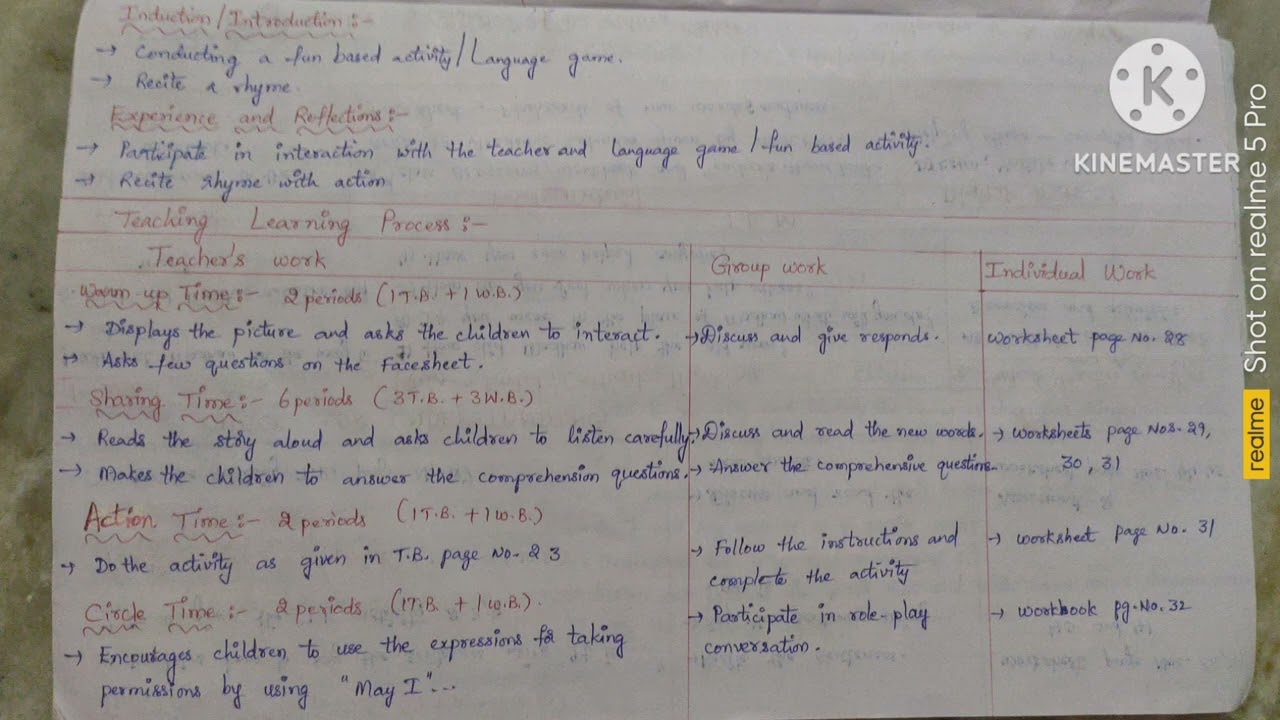 Induction/Introduction:-
→ Conducting a fun based activity/Language game.
→ Recite a rhyme.
Experience and Reflections:-
→ Participate in interaction with the teacher and language game/fun based activity.
→ Recite rhyme with action
Teaching Learning Process:-
Teacher's work
Group work
Individual Work
Warm up Time:- 2 periods (1 T.B. + 1 W.B.)
→ Displays the picture and asks the children to interact.
→ Discuss and give responds.
worksheet page No. 28
→ Asks few questions on the facesheet.
Sharing Time:- 6 periods (3 T.B. + 3 W.B.)
→ Reads the story aloud and asks children to listen carefully.
→ Discuss and read the new words.
→ worksheets page Nos. 29,
30, 31
→ Makes the children to answer the comprehension questions.
→ Answer the comprehensive questions.
Action Time:- 2 periods (1 T.B. + 1 W.B.)
→ Do the activity as given in T.B. page No. 23
→ Follow the instructions and
complete the activity
→ worksheet page No. 31
Circle Time:- 2 periods (1 T.B. + 1 W.B.).
→ Encourages children to use the expressions for taking
permissions by using "May I"...
→ Participate in role-play
conversation.
→ workbook pg. No. 32
K
KINEMASTER
realme Shot on realme 5 Pro